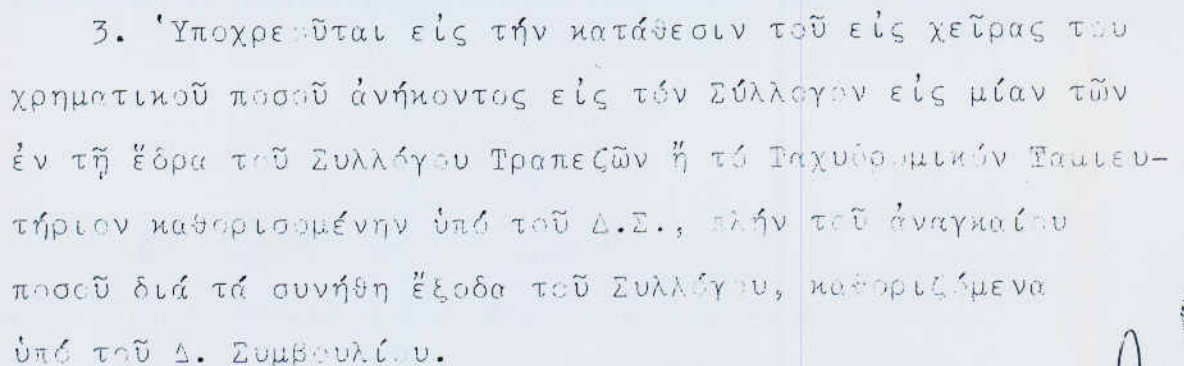 3. Ὑποχρεοῦται εἰς τήν κατάθεσιν τοῦ εἰς χεῖρας του
χρηματικοῦ ποσοῦ ἀνήκοντος εἰς τόν Σύλλογον εἰς μίαν τῶν
ἐν τῇ ἕδρα τοῦ Συλλόγου Τραπεζῶν ἤ τό Ταχυδρομικόν Ταμιευ-
τήριον καθορισομένην ὑπό τοῦ Δ.Σ., πλήν τοῦ ἀναγκαίου
ποσοῦ διά τά συνήθη ἔξοδα τοῦ Συλλόγου, καθοριζόμενα
ὑπό τοῦ Δ. Συμβουλίου.